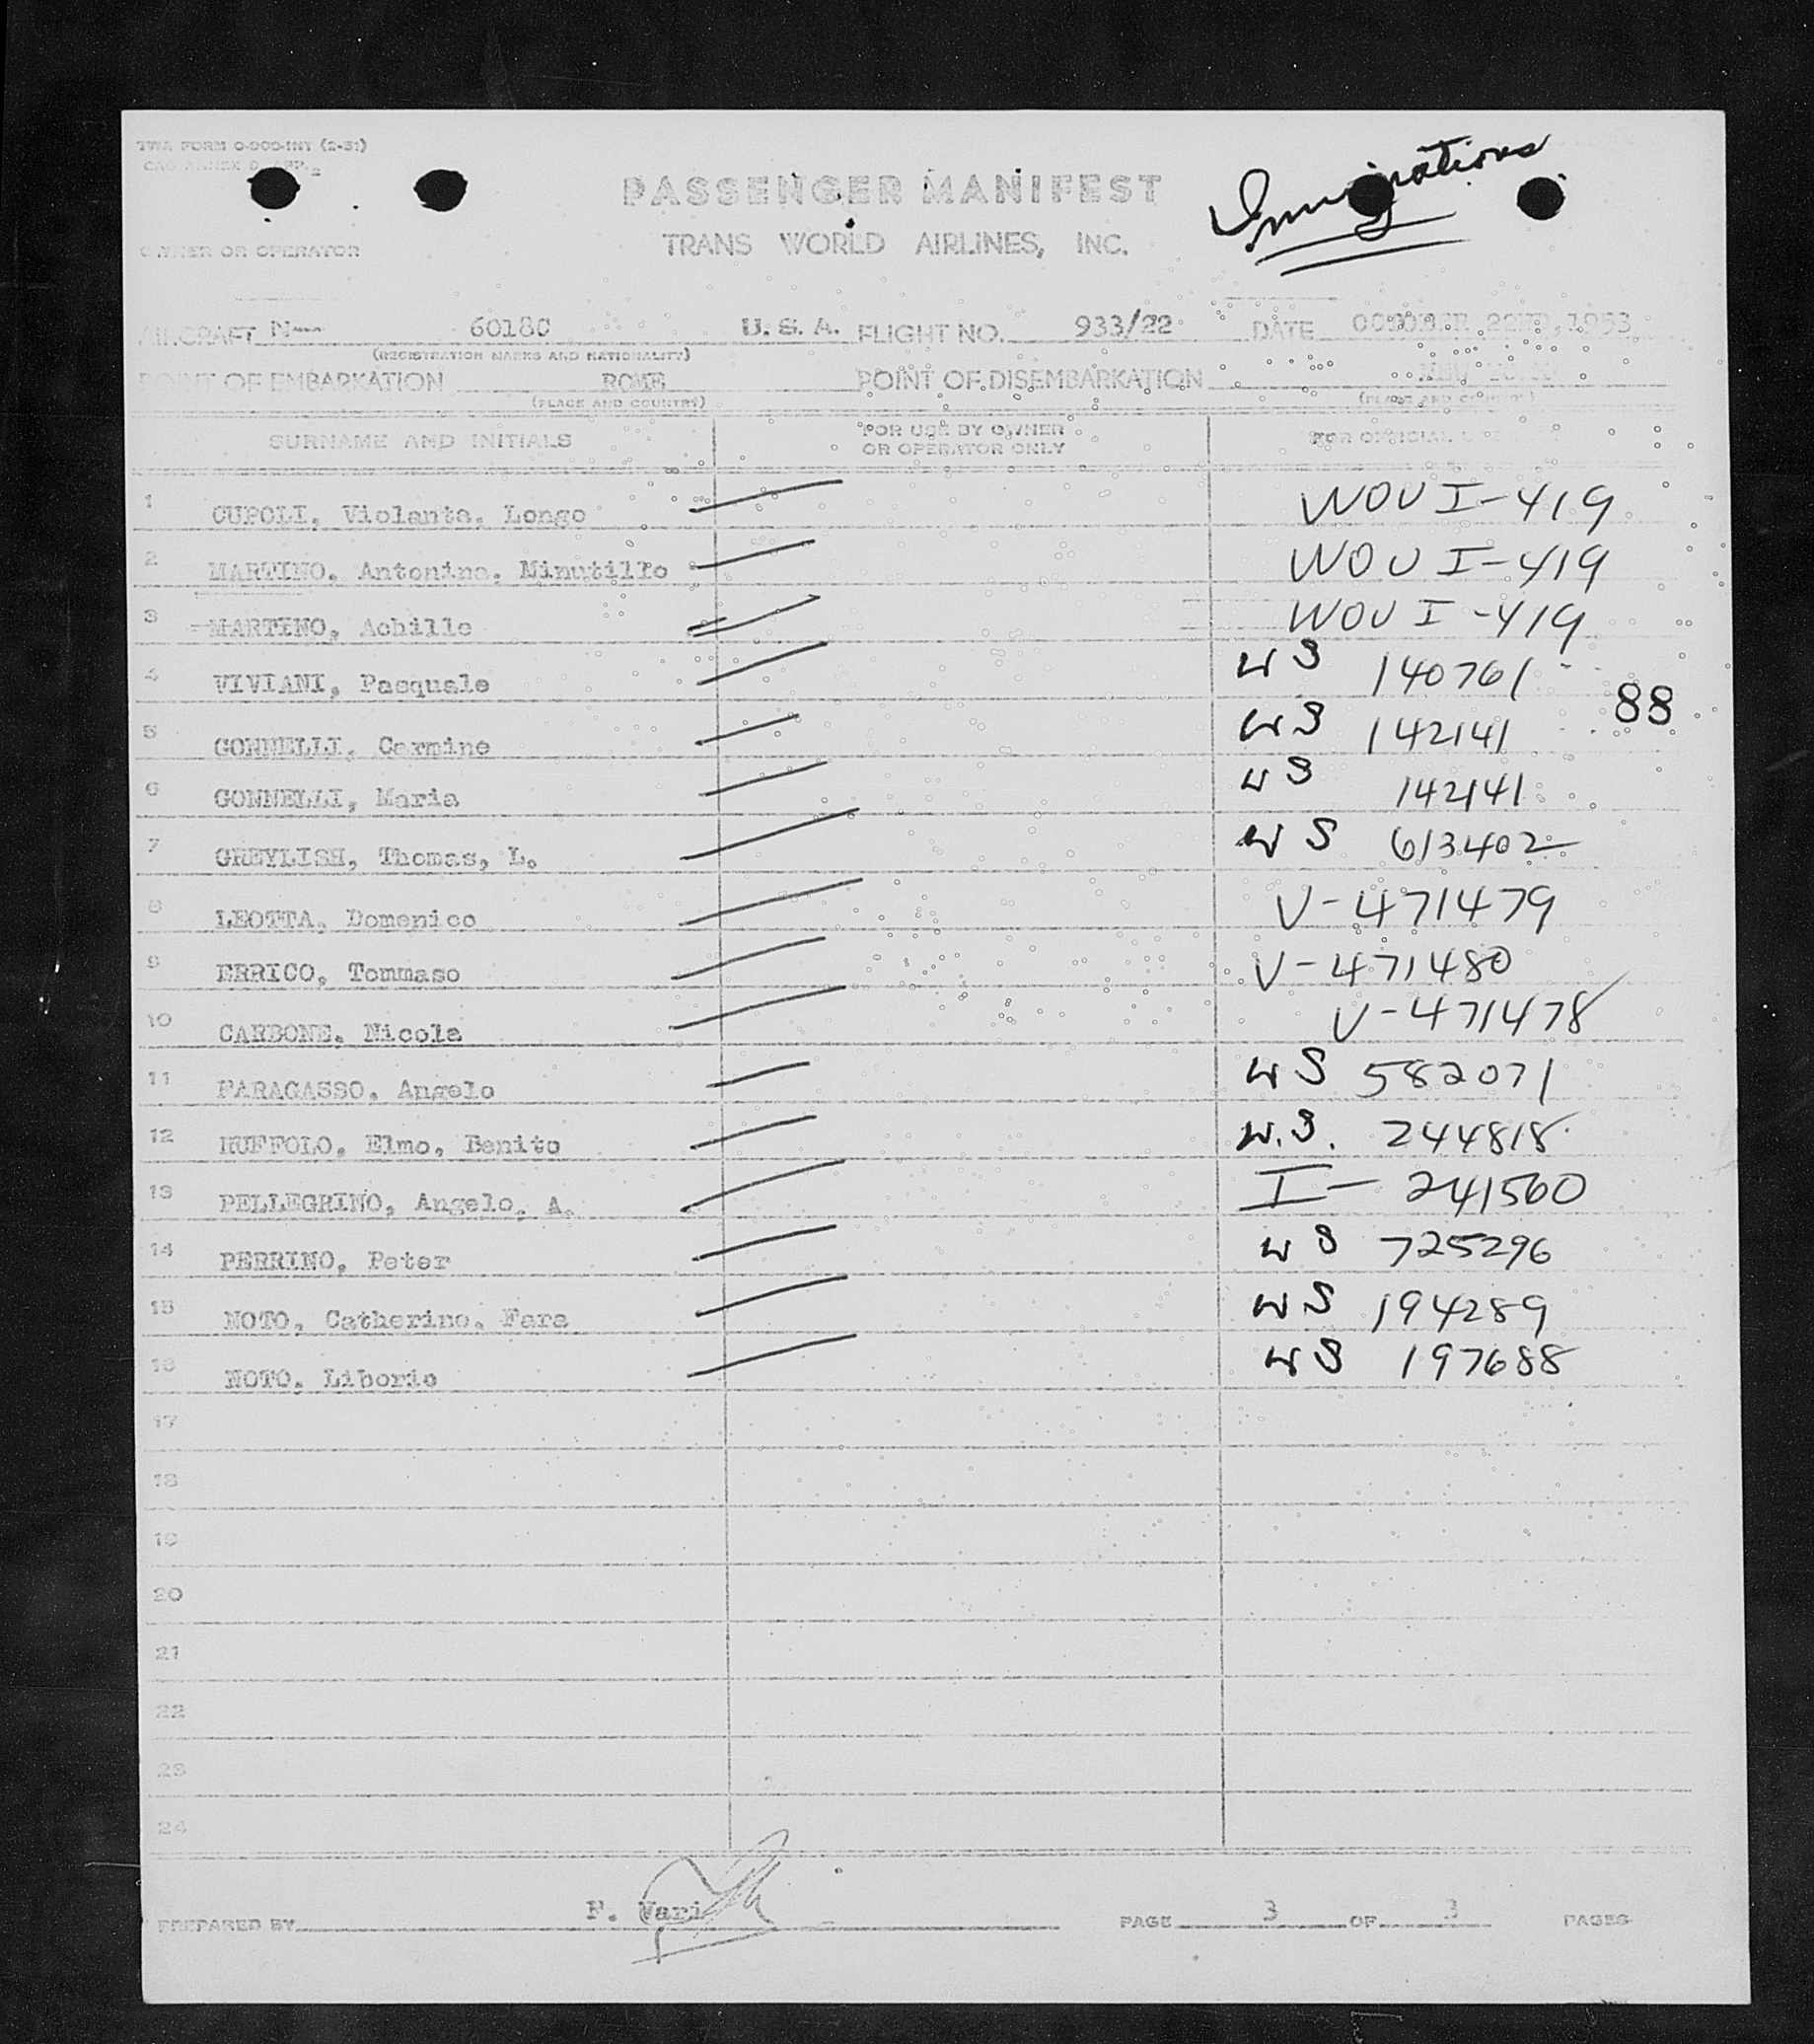 TWA FORM O-900-INT (2-51)
PASSENGER MANIFEST
Immigrations
OWNER OR OPERATOR
TRANS WORLD AIRLINES, INC.
AIRCRAFT N--- 6018C U.S.A. FLIGHT NO. 933/22 DATE OCTOBER 22ND, 1953
(REGISTRATION MARKS AND NATIONALITY)
POINT OF EMBARKATION ROME POINT OF DISEMBARKATION NEW YORK
(PLACE AND COUNTRY) (PLACE AND COUNTRY)
SURNAME AND INITIALS FOR USE BY OWNER OR OPERATOR ONLY FOR OFFICIAL USE
1 CUPOLI, Violanta, Longo WOU I-419
2 MARTINO, Antonina, Minutillo WOU I-419
3 MARTINO, Achille WOU I-419
4 VIVIANI, Pasquale US 140761
88
5 GONNELLI, Carmine US 142141
6 GONNELLI, Maria US 142141
7 GREYLISH, Thomas, L. US 613402
8 LEOTTA, Domenico V-471479
9 ERRICO, Tommaso V-471480
10 CARBONE, Nicola V-471478
11 FARAGASSO, Angelo US 582071
12 RUFFOLO, Elmo, Benito U.S. 244818
13 PELLEGRINO, Angelo, A. I-241560
14 PERRINO, Peter US 725296
15 NOTO, Catherine, Fara US 194289
16 NOTO, Liborio US 197688
17
18
19
20
21
22
23
24
PREPARED BY F. Vari PAGE 3 OF 3 PAGES